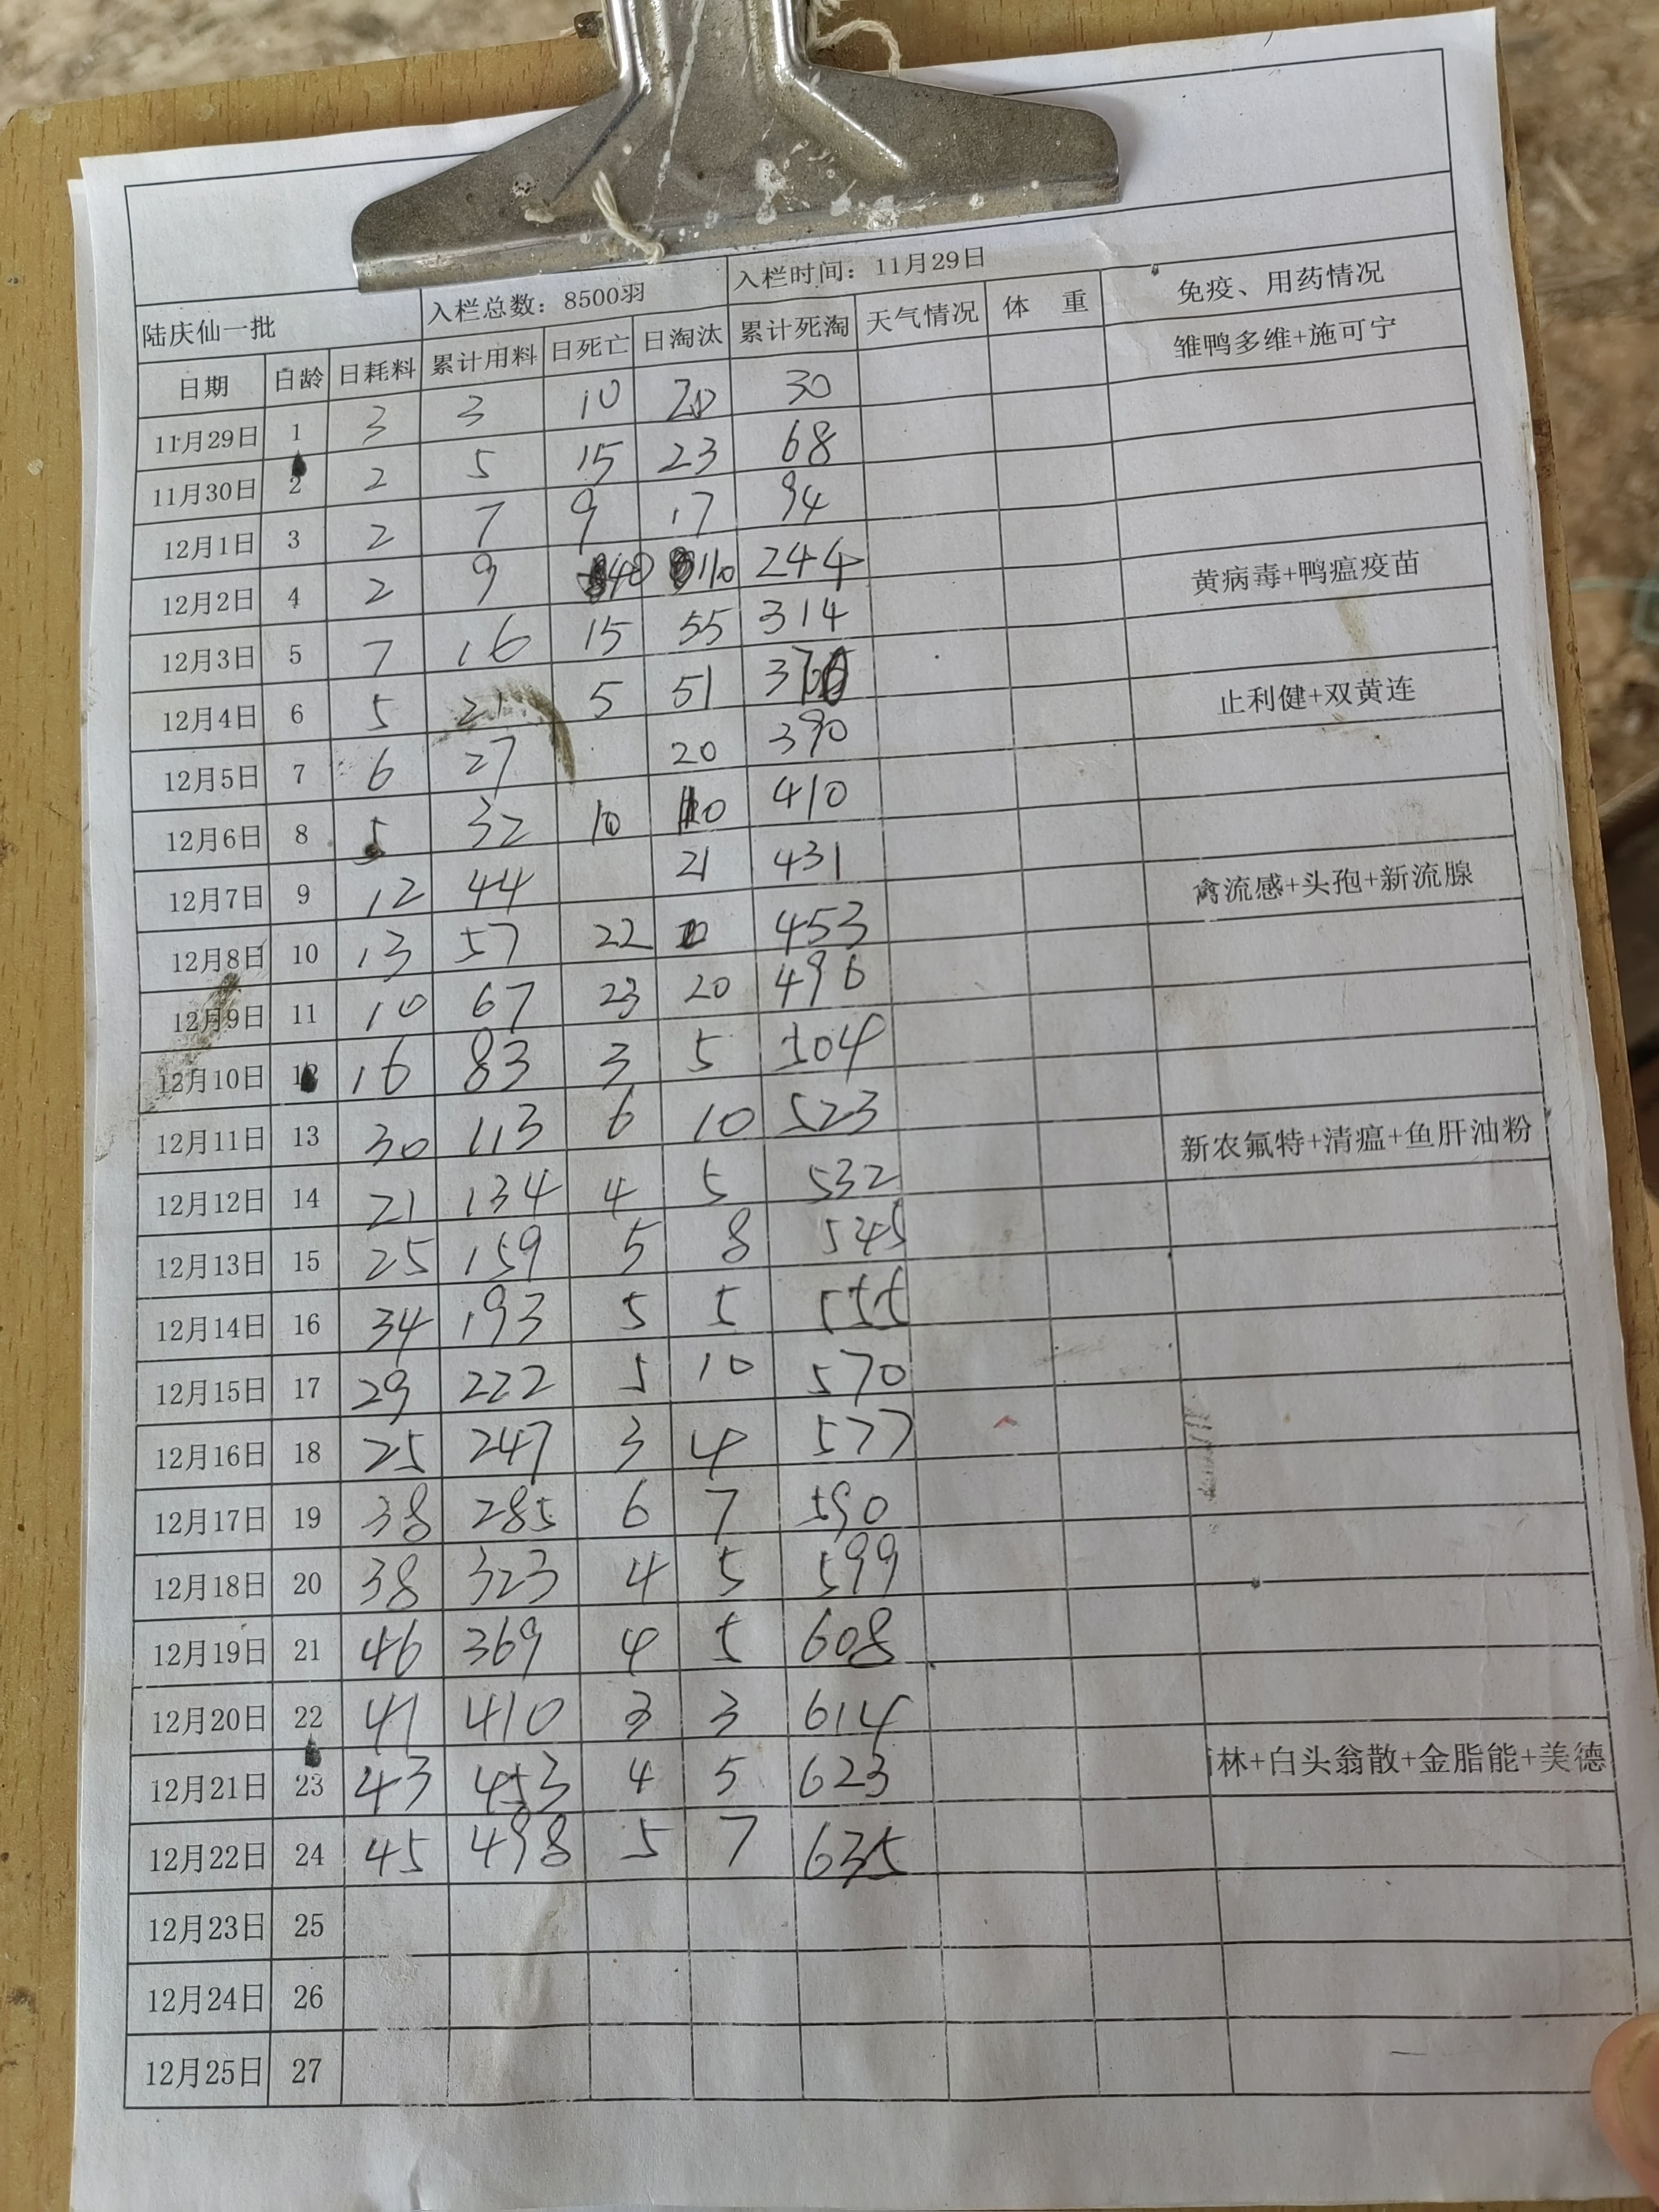 陆庆仙一批 入栏总数：8500羽 入栏时间：11月29日
日期 日龄 日耗料 累计用料 日死亡 日淘汰 累计死淘 天气情况 体 重 免疫、用药情况
11月29日 1 3 3 10 20 30 雏鸭多维+施可宁
11月30日 2 2 5 15 23 68
12月1日 3 2 7 9 17 94
12月2日 4 2 9 40 110 244
12月3日 5 7 16 15 55 314 黄病毒+鸭瘟疫苗
12月4日 6 5 21 5 51
12月5日 7 6 27 20 390 止利健+双黄连
12月6日 8 5 32 10 10 410
12月7日 9 12 44 21 431
12月8日 10 13 57 22 453 禽流感+头孢+新流腺
12月9日 11 10 67 23 20 496
12月10日 12 16 83 3 5 504
12月11日 13 30 113 6 10 523
12月12日 14 21 134 4 5 532 新农氟特+清瘟+鱼肝油粉
12月13日 15 25 159 5 8 545
12月14日 16 34 193 5 5 555
12月15日 17 29 222 5 10 570
12月16日 18 25 247 3 4 577
12月17日 19 38 285 6 7 590
12月18日 20 38 323 4 5 599
12月19日 21 46 369 4 5 608
12月20日 22 41 410 3 3 614
12月21日 23 43 453 4 5 623 林+白头翁散+金脂能+美德
12月22日 24 45 498 5 7 635
12月23日 25
12月24日 26
12月25日 27